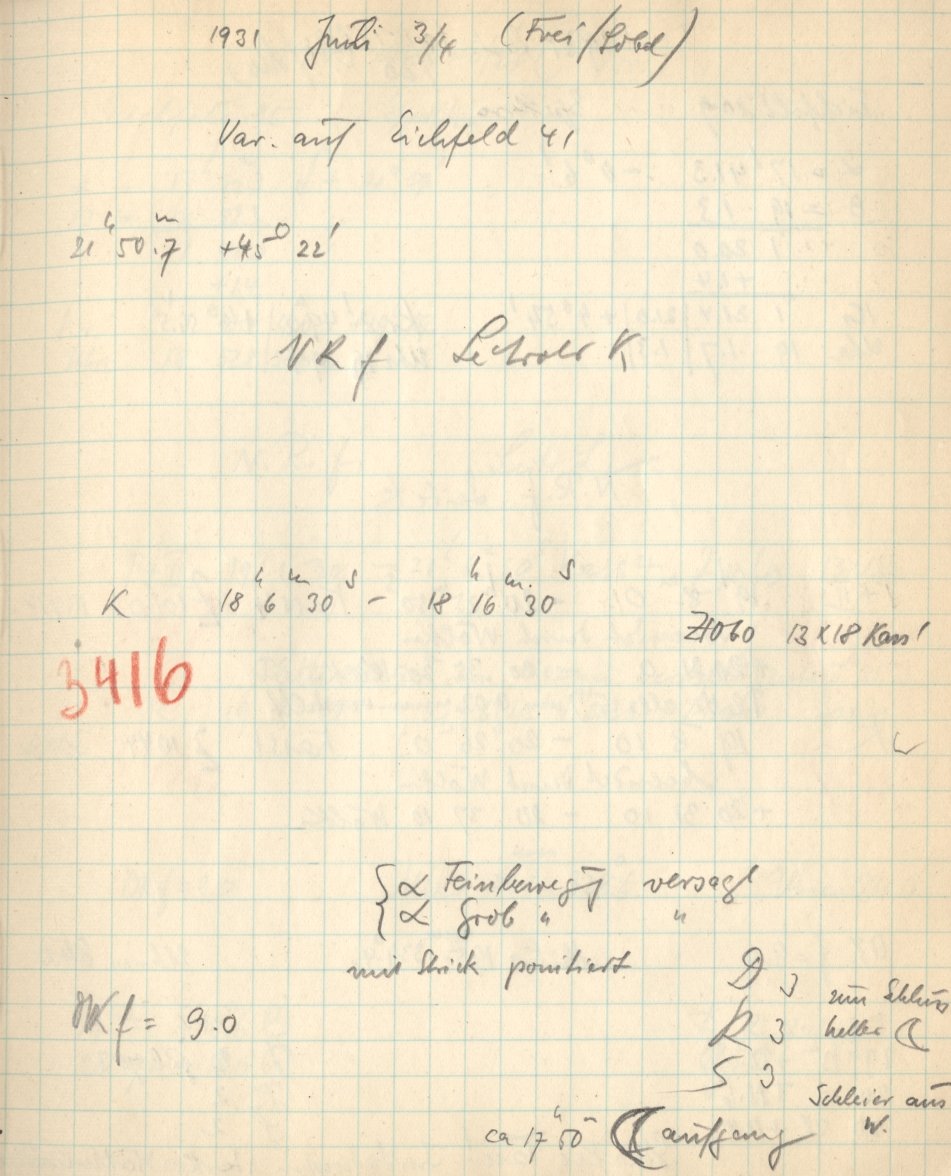 1931 Juli 3/4 (Frei/Sobd)
Var. auf Eichfeld 41
21h 50m.7 +45° 22'
K 18h 6m 30s – 18h 16m 30s
13x18 Kass!
3416
α Feinbewegg versagt
α Grob " "
mit Strick pointiert
D 3
zum Schluss
f = 9.0
R 3 heller ☾
S 3
Schleier aus
W.
ca 17h 50m ☾ aufgang